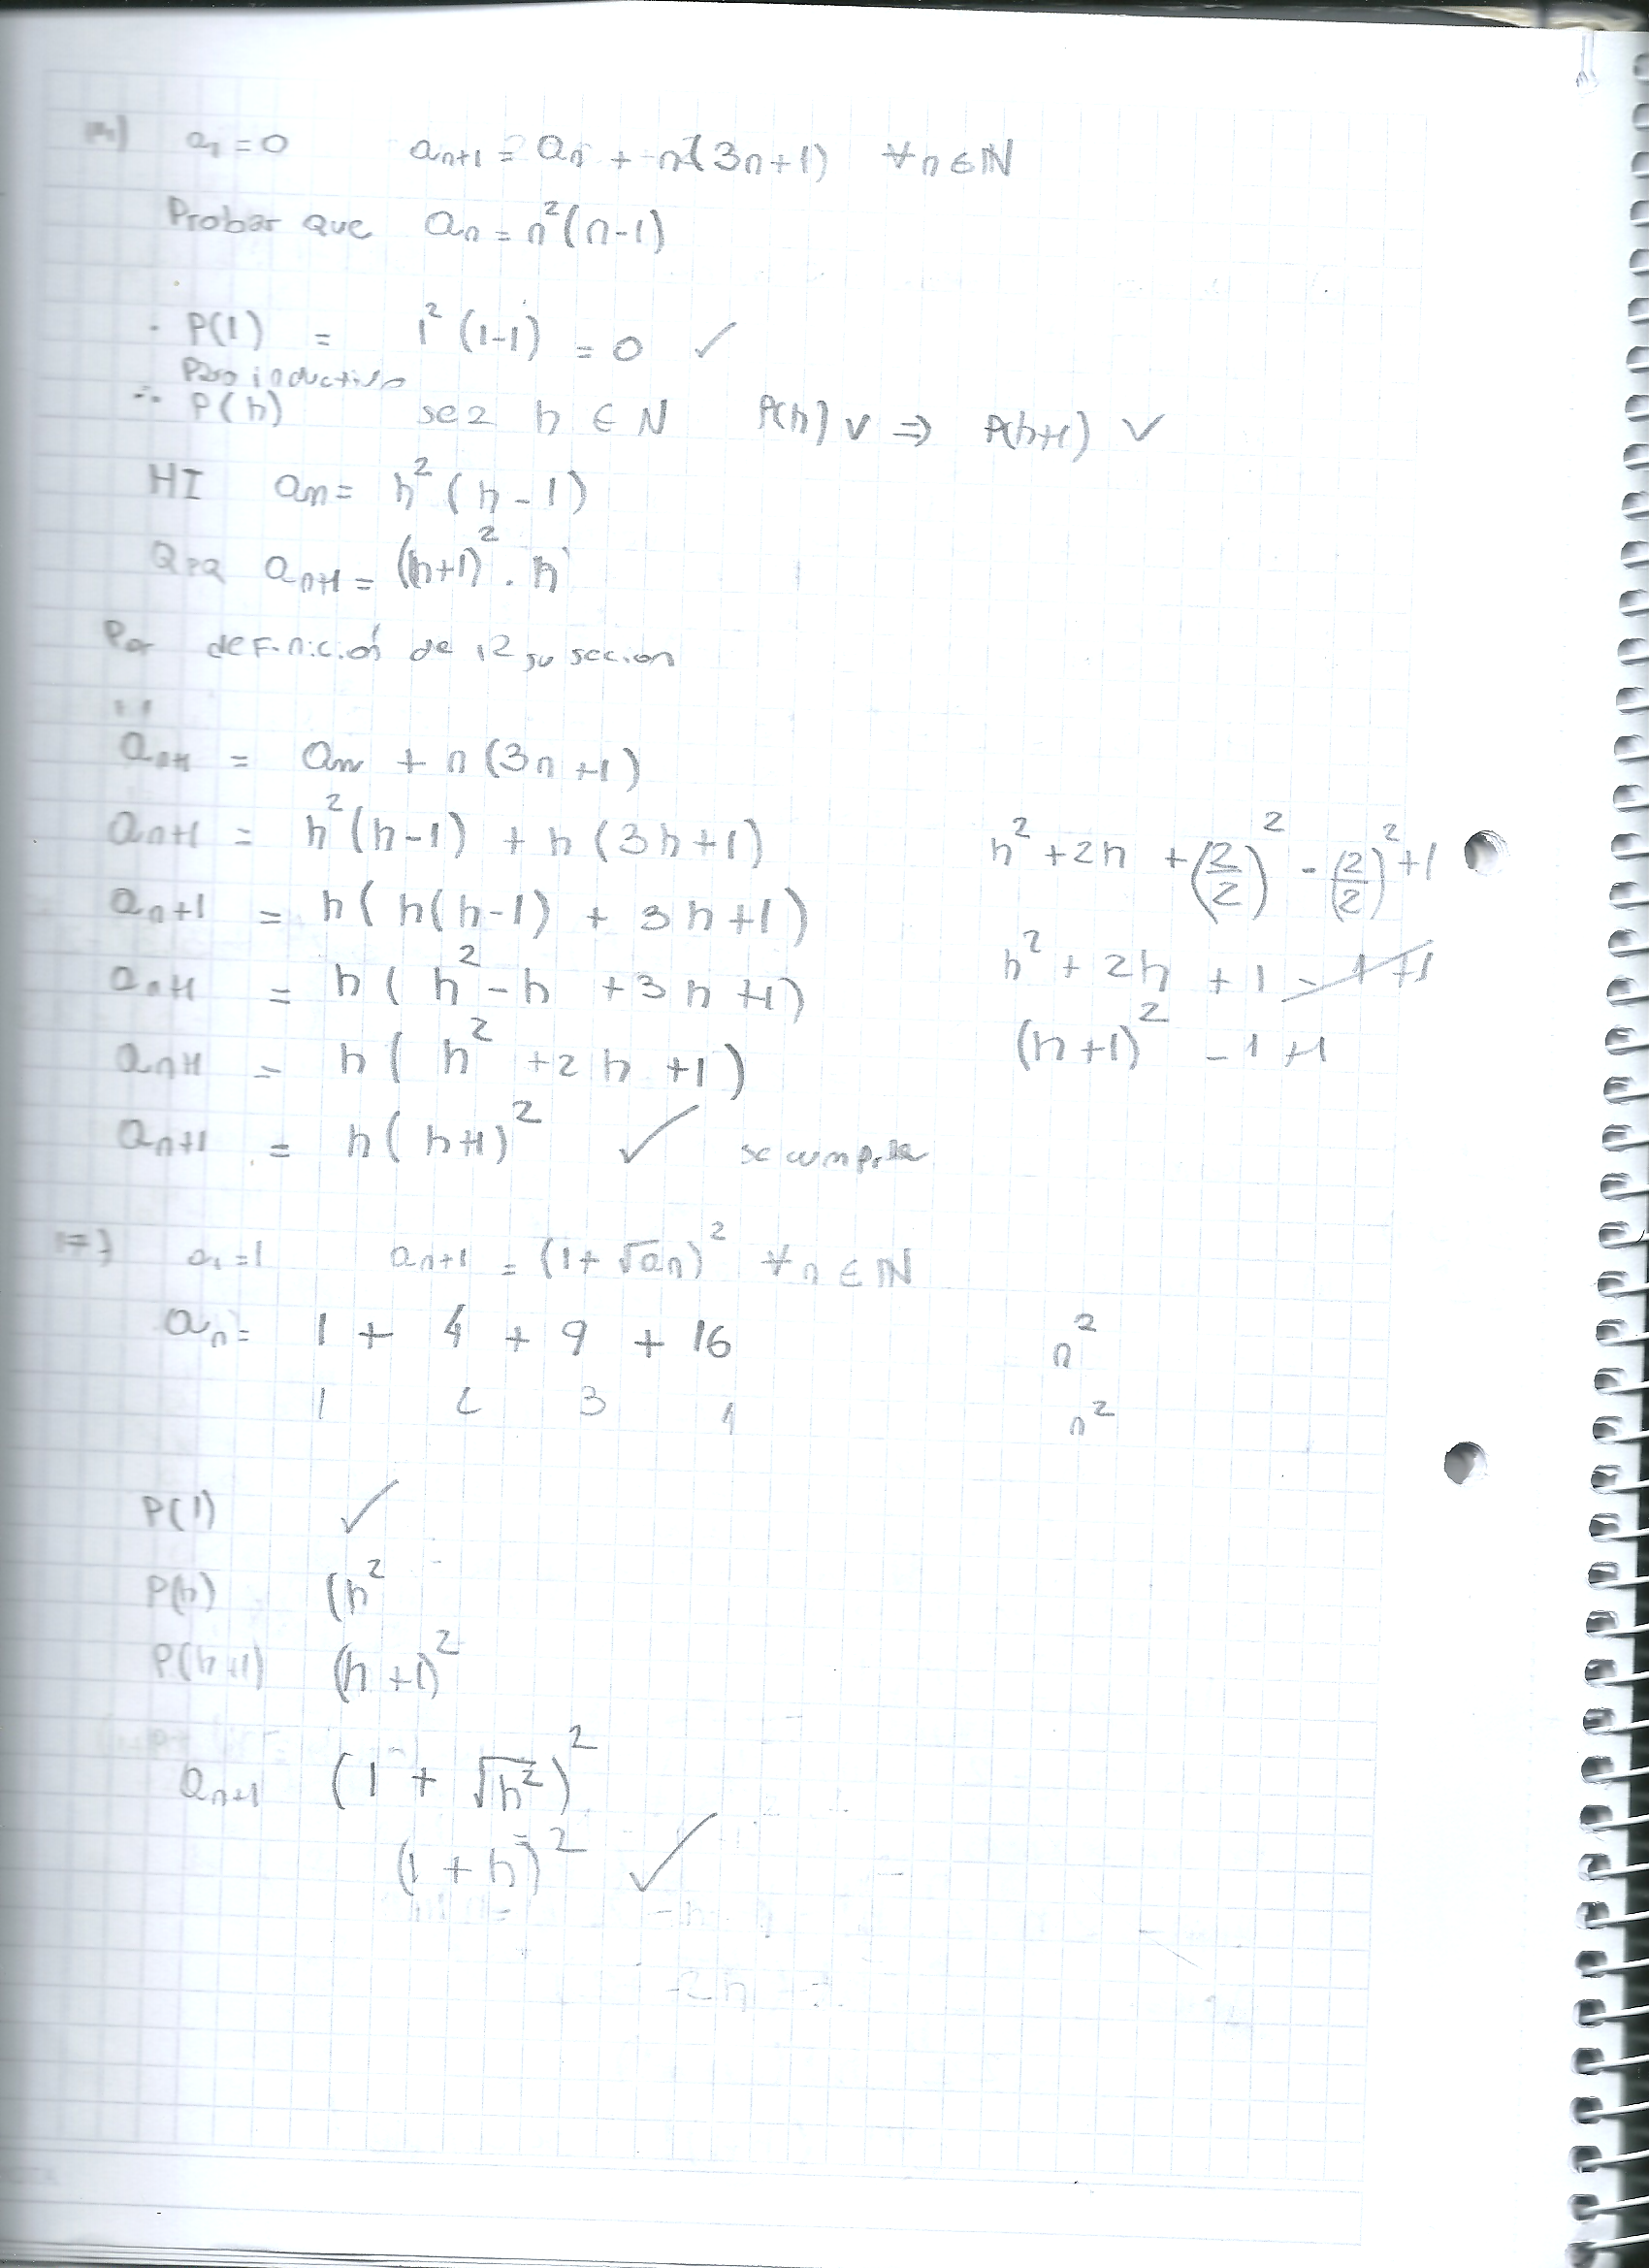 a₁ = 0 aₙ₊₁ = aₙ + n(3n+1) ∀n∈ℕ
Probar que aₙ = n²(n-1)
· P(1) = 1²(1-1) = 0 ✓
Paso inductivo
∴ P(h) sea h ∈ N P(h) V ⇒ P(h+1) V
HI aₙ = h²(h-1)
QPQ aₙ₊₁ = (h+1)² . h
Por definición de la susecion
aₙ₊₁ = aₙ + n(3n+1)
aₙ₊₁ = h²(h-1) + h(3h+1)
aₙ₊₁ = h(h(h-1) + 3h+1)
aₙ₊₁ = h(h²-h +3h+1)
aₙ₊₁ = h(h² +2h +1)
aₙ₊₁ = h(h+1)² ✓ se cumple
h² +2h +(2/2)² - (2/2)² +1
h² + 2h + 1 - 1 +1
(h+1)² - 1 +1
17) a₁ = 1 aₙ₊₁ = (1+√aₙ)² ∀n∈ℕ
aₙ = 1 + 4 + 9 + 16 n²
1 2 3 4 n²
P(1) ✓
P(h) (h²
P(h+1) (h+1)²
aₙ₊₁ (1 + √h²)²
(1+h)² ✓